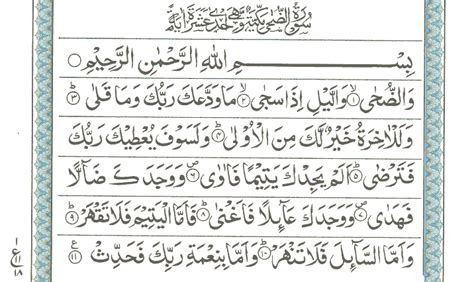 سُورَةُ الضُّحٰى مَكِّيَّةٌ وَّهِيَ اِحْدٰى عَشْرَةَ اٰيَةً
بِسْمِ اللهِ الرَّحْمٰنِ الرَّحِيْمِ
وَالضُّحٰى ۙ۝۱ وَالَّيْلِ اِذَا سَجٰى ۙ۝۲ مَا وَدَّعَكَ رَبُّكَ وَمَا قَلٰى ؕ۝۳
وَلَلْاٰخِرَةُ خَيْرٌ لَّكَ مِنَ الْاُوْلٰى ؕ۝۴ وَلَسَوْفَ يُعْطِيْكَ رَبُّكَ
فَتَرْضٰى ؕ۝۵ اَلَمْ يَجِدْكَ يَتِيْمًا فَاٰوٰى ۪۝۶ وَوَجَدَكَ ضَآلًّا
فَهَدٰى ۪۝۷ وَوَجَدَكَ عَآئِلًا فَاَغْنٰى ؕ۝۸ فَاَمَّا الْيَتِيْمَ فَلَا تَقْهَرْ ؕ۝۹
وَاَمَّا السَّآئِلَ فَلَا تَنْهَرْ ؕ۝۱۰ وَاَمَّا بِنِعْمَةِ رَبِّكَ فَحَدِّثْ ۝۱۱ ع
۱
ع ۱۱
۱۸